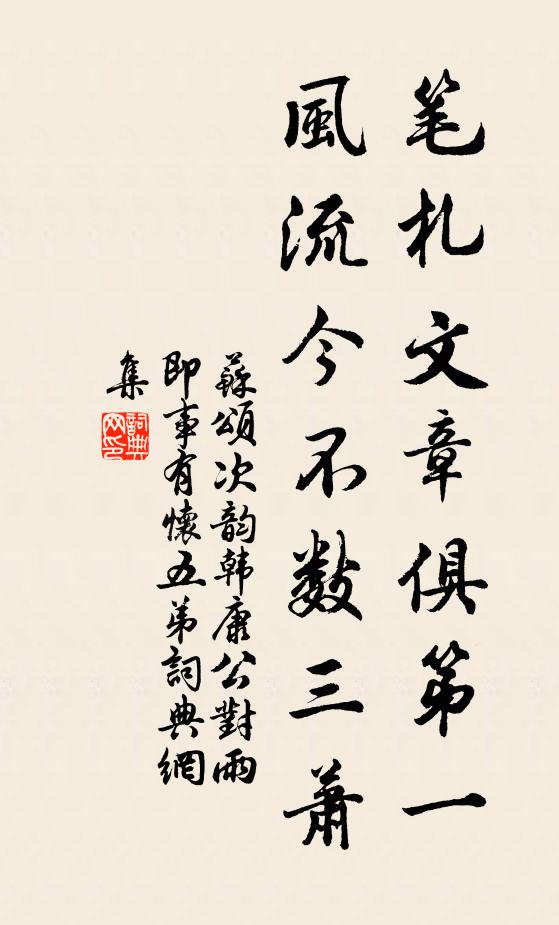 笔札文章俱第一
風流今不數三蕭
蘇頌次韵韩康公對雨
即事有懷五弟詞典網
集
詞典
网印